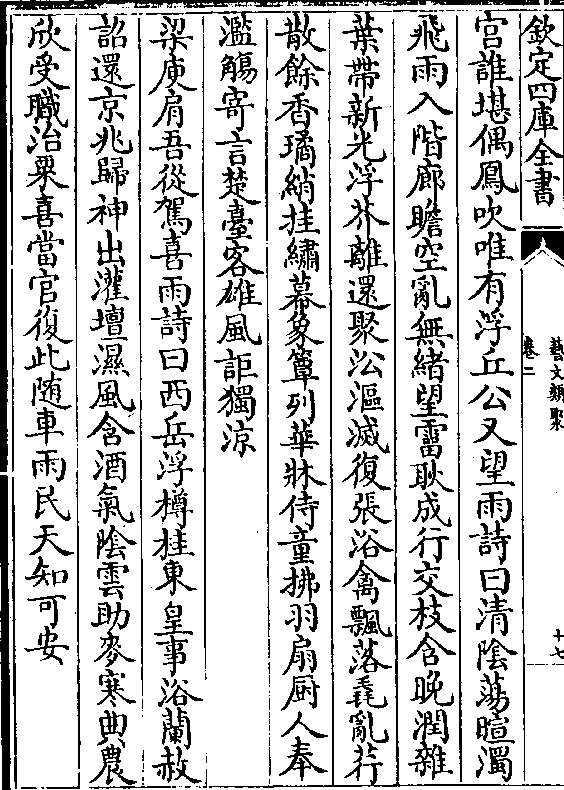 欽定四庫全書
藝文類聚
卷二
十七
宮誰堪偶鳳吹唯有浮丘公又望雨詩曰清陰蕩暄濁
飛雨入階廊瞻空亂無緒望霤耿成行交枝含晚潤雜
葉帶新光浮芥離還聚㳂漚滅復張浴禽飄落毳亂荇
散餘香璚綃挂繡幕象簟列華牀侍童拂羽扇厨人奉
濫觴寄言楚臺客雄風詎獨涼
梁庾肩吾從駕喜雨詩曰西岳浮樽桂東皇事浴蘭赦
詔還京兆歸神出灌壇濕風含酒氣陰雲助麥寒典農
欣受職治粟喜當官復此随車雨民天知可安